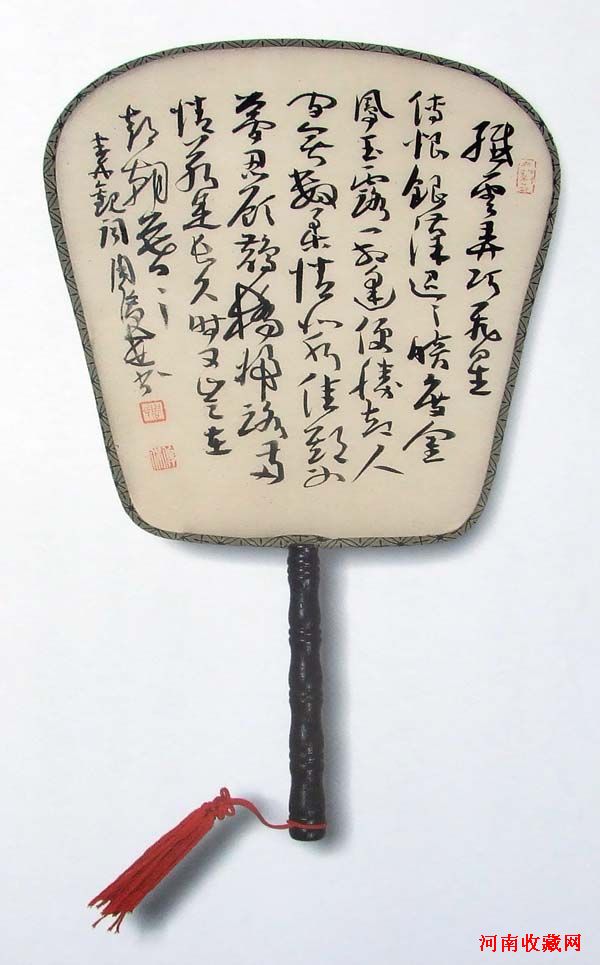 纖雲弄巧飛星
傳恨銀漢迢〻暗度金
風玉露一相逢便勝却人
间無數柔情似水佳期如
夢忍顧鵲橋歸路兩
情若是长久时又岂在
朝朝暮〻
秦觀詞周俊杰书
河南收藏网